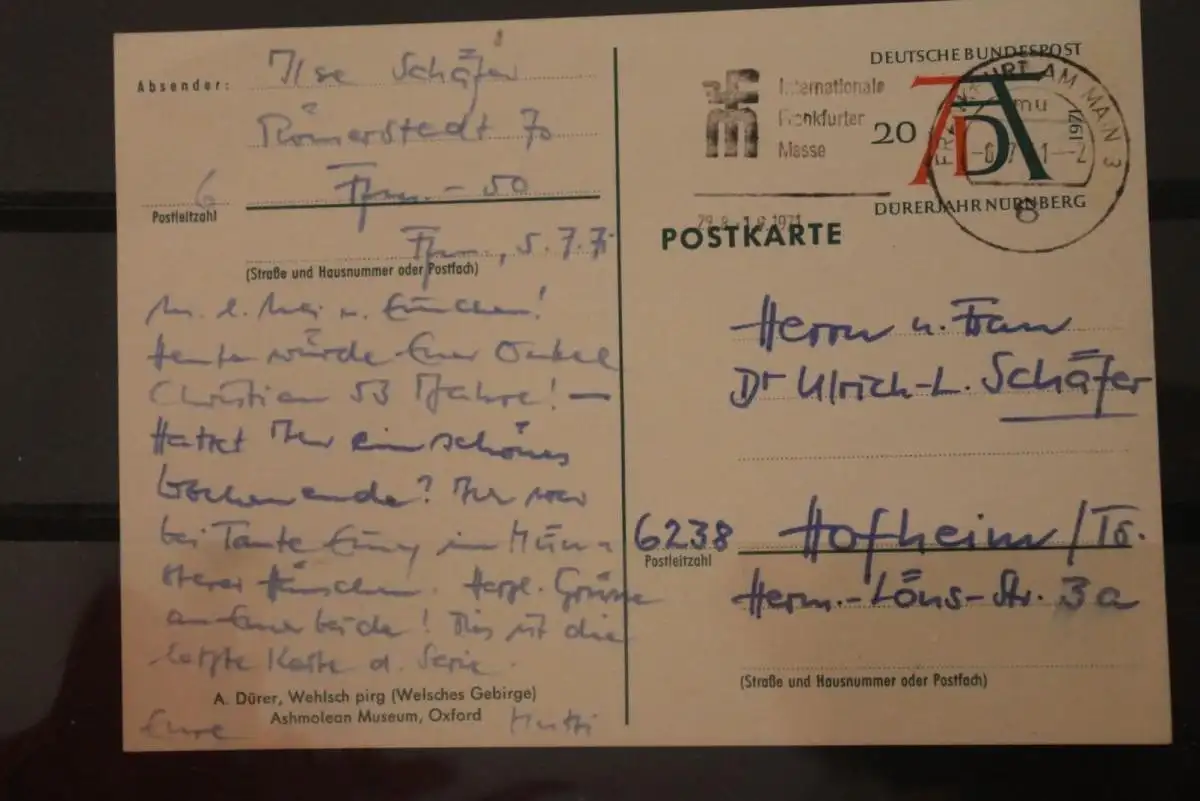 Absender: Ilse Schäfer
Römerstadt 70
6 Ffm. - 50
Postleitzahl
Ffm., 5.7.71
(Straße und Hausnummer oder Postfach)
M. l. u. !
Heute würde Euer Onkel
Christian 53 Jahre! —
Hattet Ihr ein schönes
Wochenende? Ich war
bei Tante in Mün-
sterer Häuschen. Herzl. Grüsse
an Euer beide! Dies ist die
letzte Karte d. Serie.
A. Dürer, Wehlsch pirg (Welsches Gebirge)
Ashmolean Museum, Oxford
Eure Mutti
Internationale
Frankfurter
Messe
29.8.-1.9.1971
DEUTSCHE BUNDESPOST
20 71 AD
DÜRERJAHR NÜRNBERG
FRANKFURT AM MAIN 3
1971
POSTKARTE
Herrn u. Frau
Dr Ulrich-L. Schäfer
6238 Hofheim/Ts.
Postleitzahl
Herm.-Löns-Str. 3a
(Straße und Hausnummer oder Postfach)